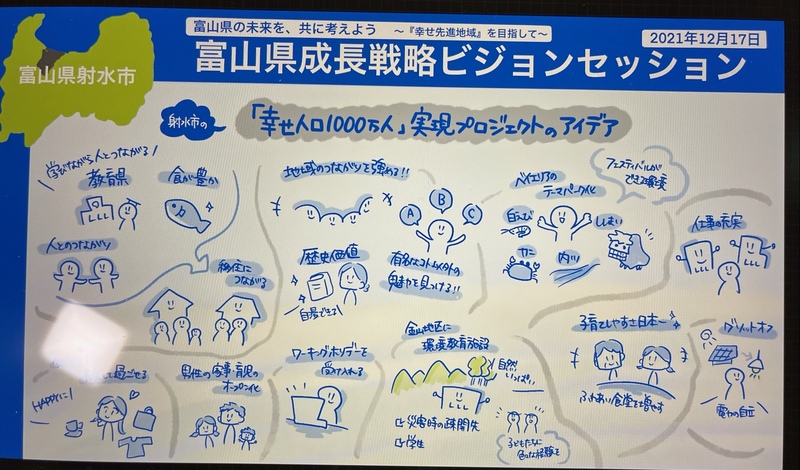 富山県の未来を、共に考えよう　～『幸せ先進地域』を目指して～
2021年12月17日
富山県射水市
富山県成長戦略ビジョンセッション
射水市の
「幸せ人口1000万人」実現プロジェクトのアイデア
学びながら人とつながる！
教育県
食が豊か
人とのつながり
移住に
つながる
地域のつながりを強める！！
A
B
C
歴史価値
自慢できる！
有名なコト・ヒト以外の
魅力を見つける！！
ベイエリアの
テーマパーク化
白えび
ししまい
カニ
内川
フェスティバルが
できる環境
仕事の充実
過ごせる
HAPPYに！
男性の家事・育児の
オープン化
ワーキングホリデーを
受け入れる
金山地区に
環境教育施設
自然
いっぱい
災害時の疎開先
学生
子どもたちに
色んな経験を
子育てしやすさ日本一
ふれあい食堂を増やす
グリットオフ
電力の自立